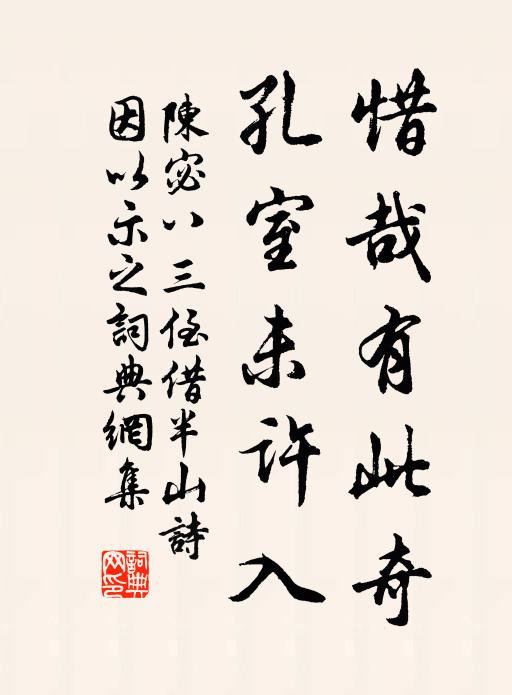 惜哉有此奇
孔室未許入
陳宓八三侄借半山詩
因以示之詞典網集
詞典網印